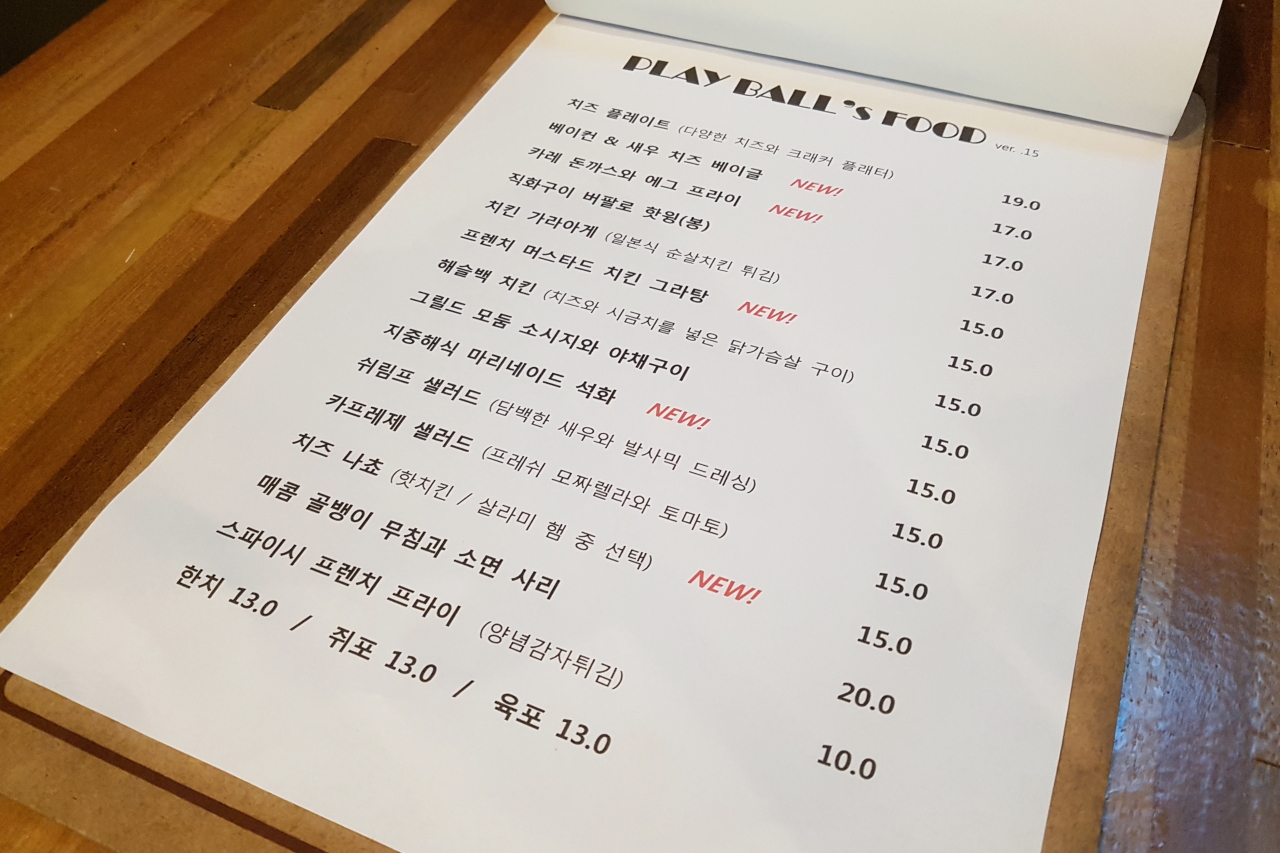 PLAY BALL's FOOD ver. .15
치즈 플레이트 (다양한 치즈와 크래커 플래터) 19.0
베이컨 & 새우 치즈 베이글 NEW! 17.0
카레 돈까스와 에그 프라이 NEW! 17.0
직화구이 버팔로 핫윙(봉) 17.0
치킨 가라아게 (일본식 순살치킨 튀김) 15.0
프렌치 머스타드 치킨 그라탕 NEW! 15.0
해슬백 치킨 (치즈와 시금치를 넣은 닭가슴살 구이) 15.0
그릴드 모둠 소시지와 야채구이 15.0
지중해식 마리네이드 석화 NEW! 15.0
쉬림프 샐러드 (담백한 새우와 발사믹 드레싱) 15.0
카프레제 샐러드 (프레쉬 모짜렐라와 토마토) 15.0
치즈 나쵸 (핫치킨 / 살라미 햄 중 선택) 15.0
매콤 골뱅이 무침과 소면 사리 NEW! 20.0
스파이시 프렌치 프라이 (양념감자튀김) 10.0
한치 13.0 / 쥐포 13.0 / 육포 13.0